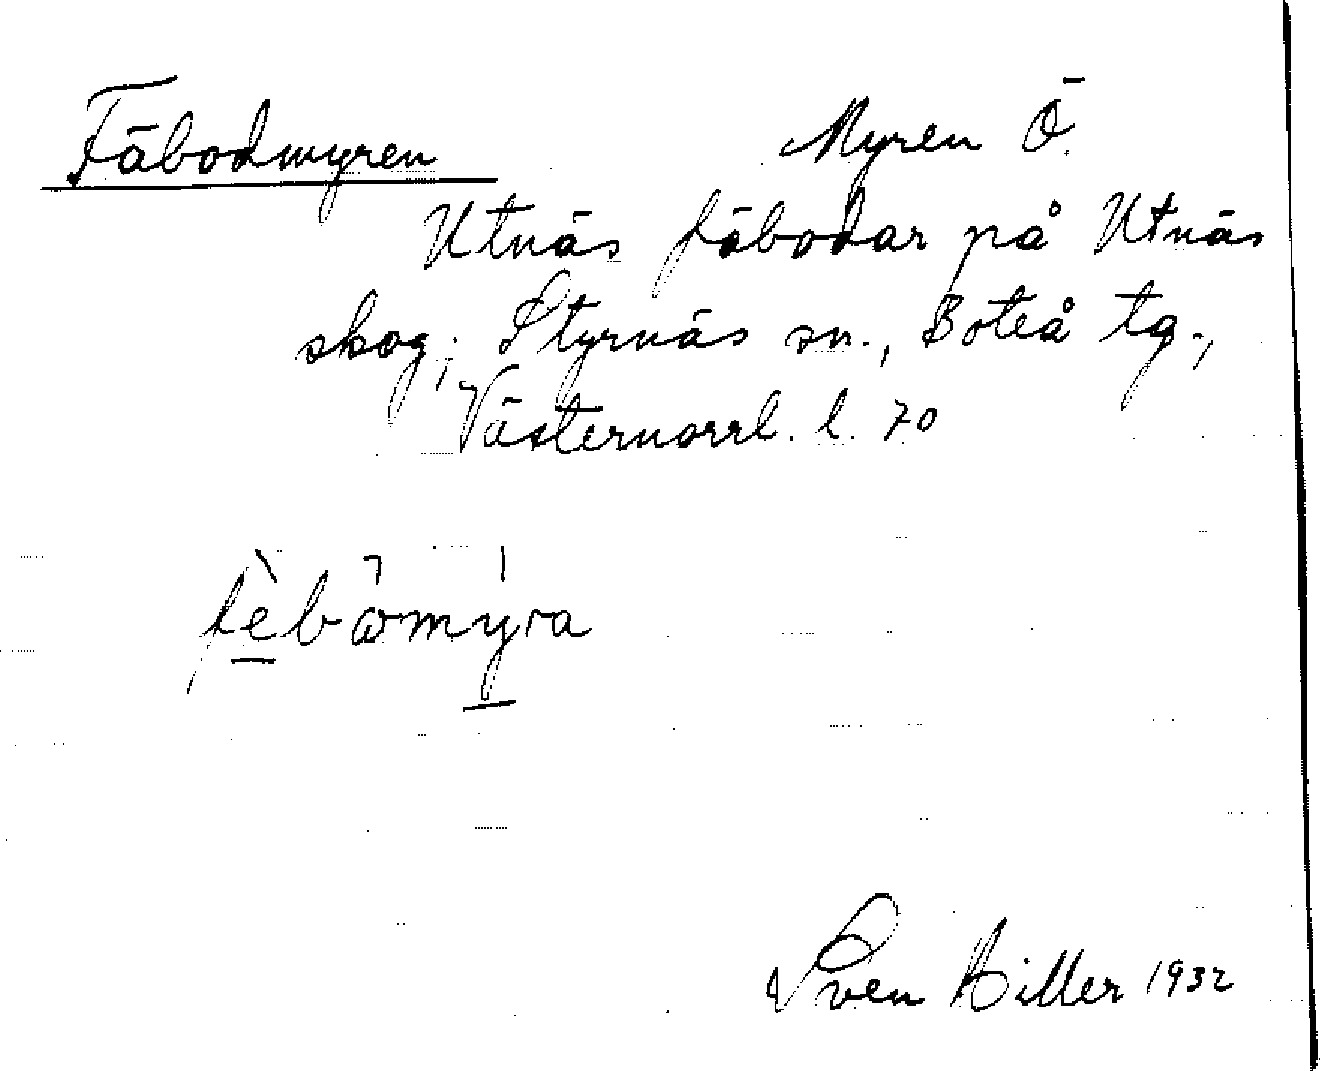 Fäbodmyren Myren Ö.
Utnäs fäbodar på Utnäs
skog; Styrnäs sn., Boteå tg.,
Västernorrl. l. 70
fèbòmýra
Sven Hiller 1932